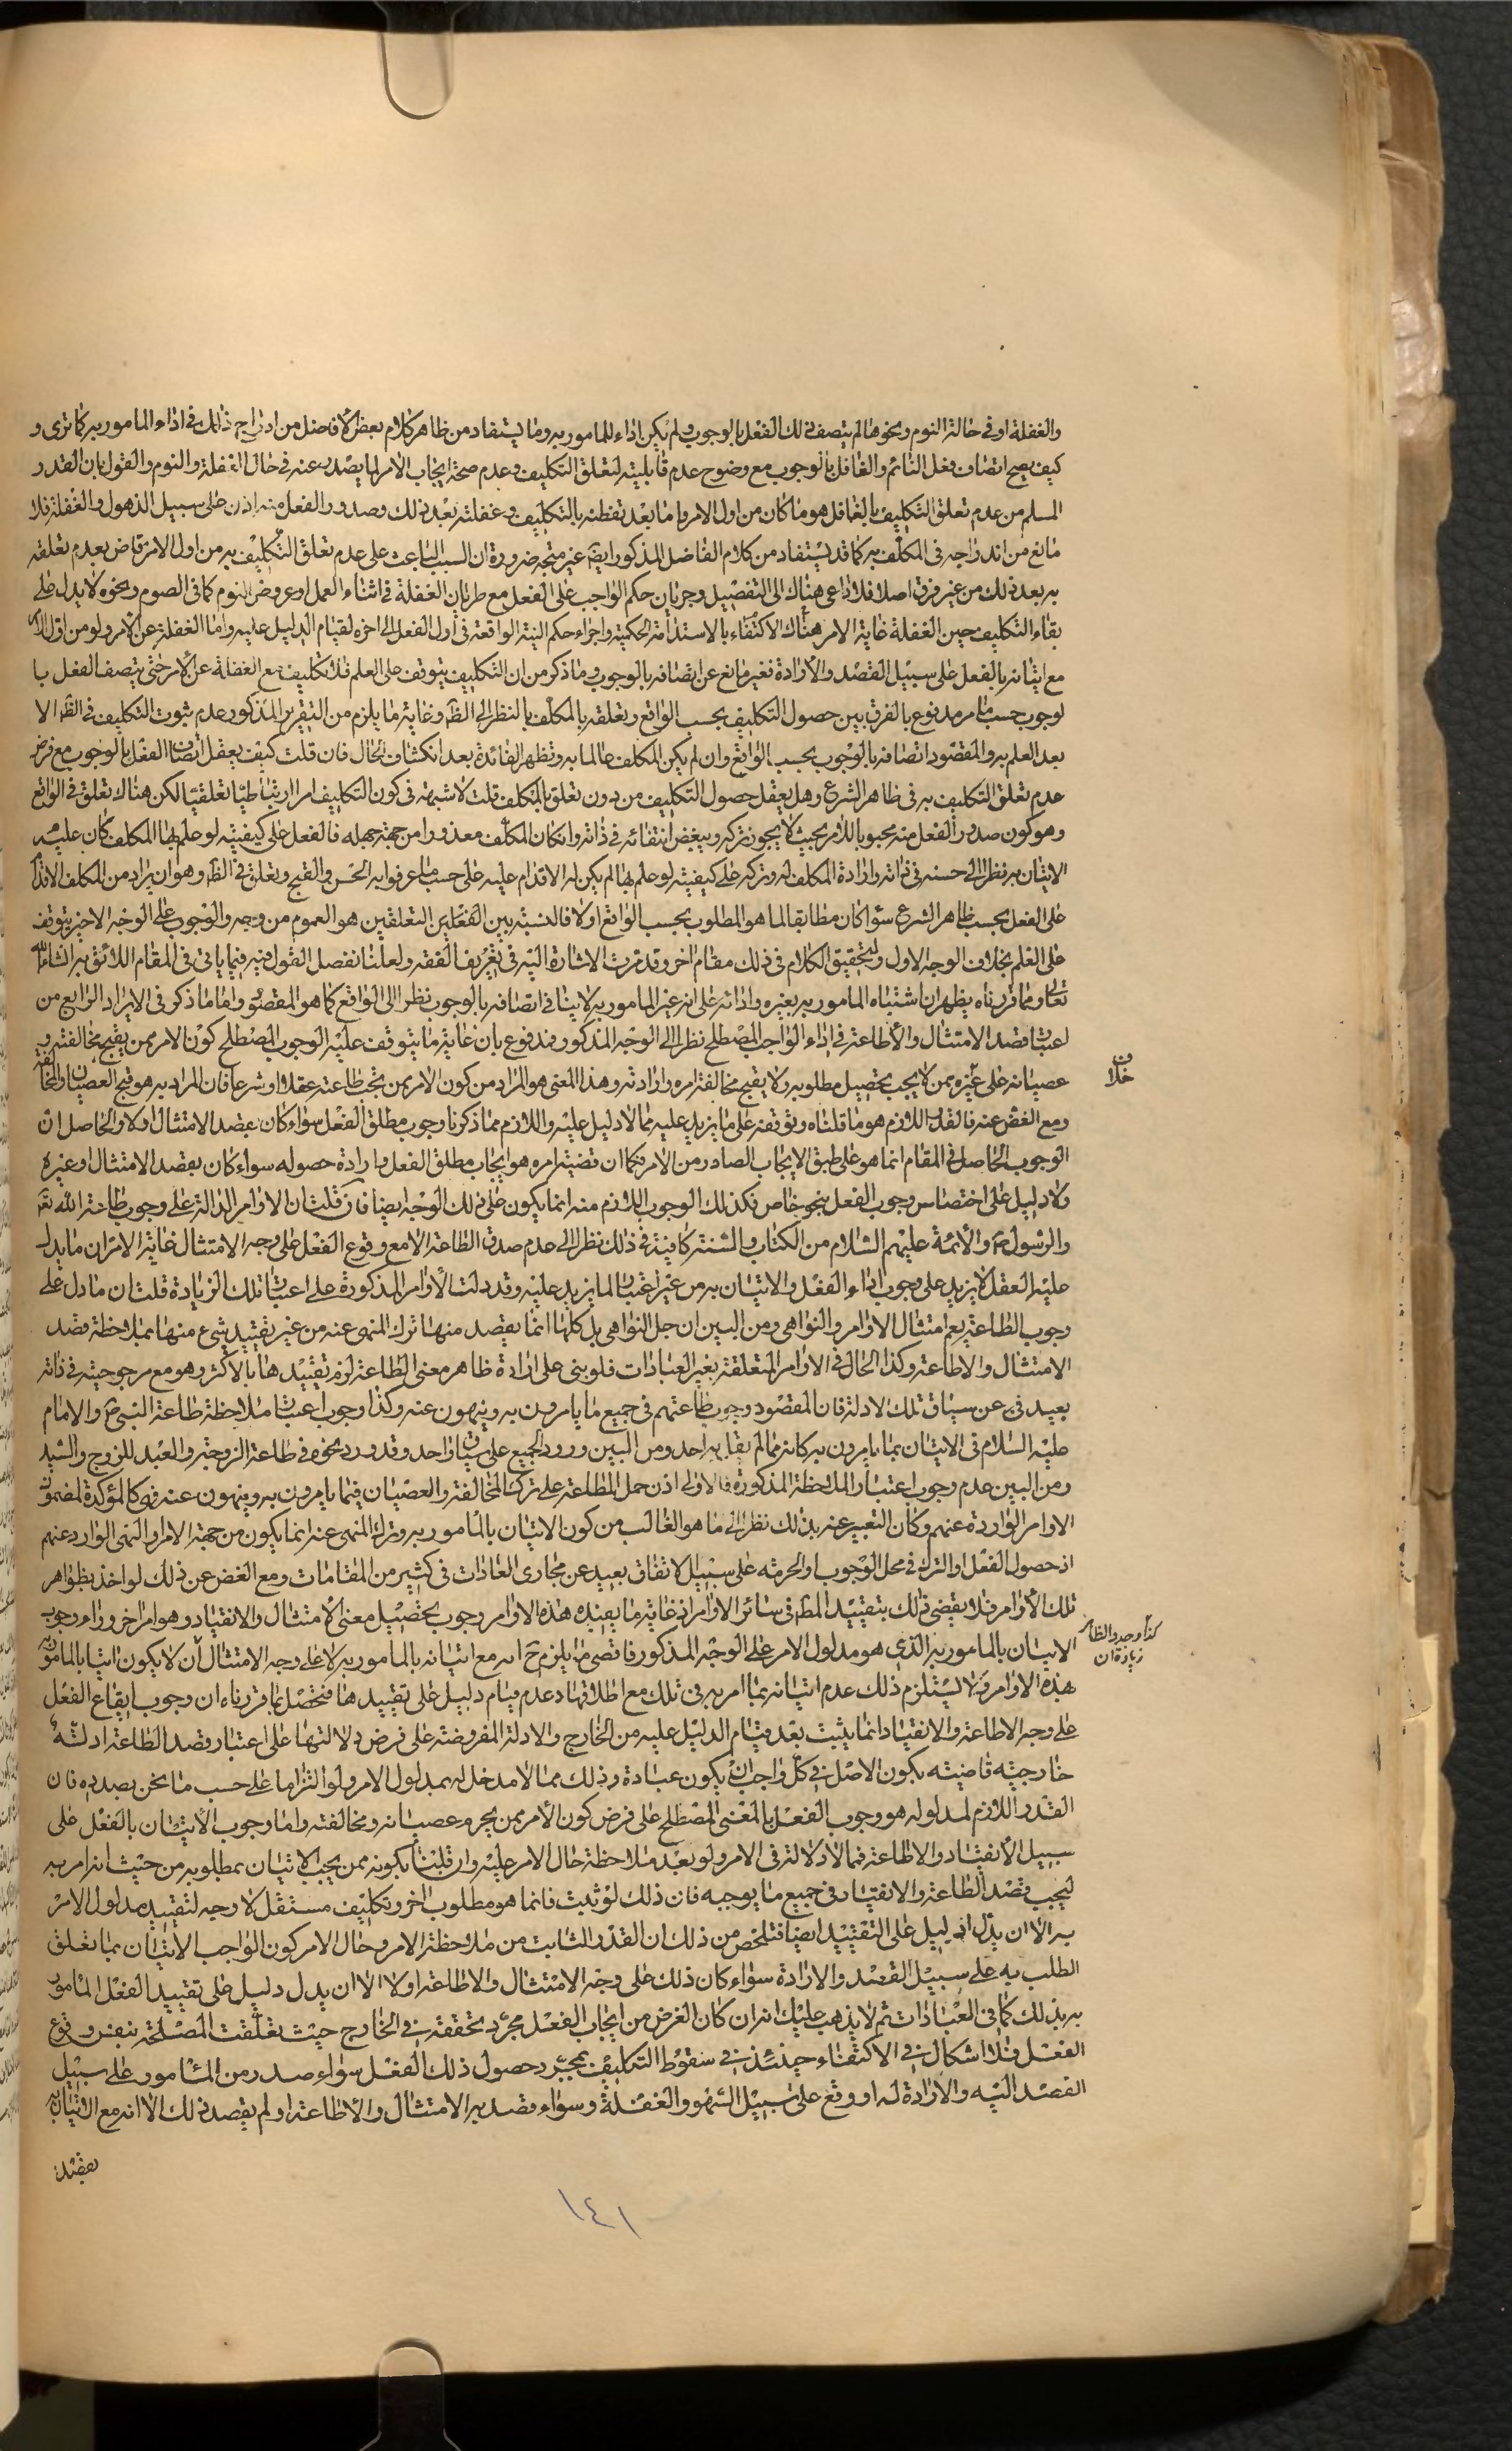 والغفلة او في حالة النوم ونحوها لم يتصف ذلك الفعل بالوجوب ولم يكن اداء للمامور به وما يستفاد من ظاهر كلام بعض الافاضل من ادراج ذلك في اداء المامور به كما ترى و
كيف يصح اتصاف فعل النائم والغافل بالوجوب مع وضوح عدم قابليته لتعلق التكليف وعدم صحة ايجاب الامر لما يصدر عنه في حال الغفلة والنوم والقول بان القدر
المسلم من عدم تعلق التكليف بالغافل هو ما كان من اول الامر واما بعد تفطنه بالتكليف وغفلته بعد ذلك وصدور الفعل منه اذن على سبيل الذهول والغفلة فلا
مانع من اندراجه في المكلف به كما قد يستفاد من كلام الفاضل المذكور ايضا غير متجه ضرورة ان السبب الباعث على عدم تعلق التكليف به من اول الامر قاض بعدم تعلقه
به بعد ذلك من غير فرق اصلا فلا داعي هناك الى التفصيل وجريان حكم الواجب على الفعل مع طريان الغفلة في اثناء العمل او عروض النوم كما في الصوم ونحوه لا يدل على
بقاء التكليف حين الغفلة غاية الامر هناك الاكتفاء بالاستدامة الحكمية واجراء حكم النية الواقعة في اول الفعل الى اخره لقيام الدليل عليه واما الغفلة عن الامر ولو من اول الامر
مع اتيانه بالفعل على سبيل القصد والارادة فغير مانع عن اتصافه بالوجوب وما ذكر من ان التكليف يتوقف على العلم فلا تكليف مع الغفلة عن الامر حتى يتصف الفعل با
لوجوب حسب ما مر مدفوع بالفرق بين حصول التكليف بحسب الواقع وتعلقه بالمكلف بالنظر الى الظ وغاية ما يلزم من التقرير المذكور عدم ثبوت التكليف في الظ الا
بعد العلم به والمقصود اتصافه بالوجوب بحسب الواقع وان لم يكن المكلف عالما به وتظهر الفائدة بعد انكشاف الحال فان قلت كيف يعقل اتصاف الفعل بالوجوب مع فرض
عدم تعلق التكليف به في ظاهر الشرع وهل يعقل حصول التكليف من دون تعلق بالمكلف قلت لا شبهة في كون التكليف امرا ارتباطيا تعلقيا لكن هناك تعلق في الواقع
وهو كون صدور الفعل منه محبوبا للامر بحيث لا يجوز تركه ويبغض انتفائه في ذاته وان كان المكلف معذورا من جهة جهله فالفعل على كيفية لو علم بها المكلف كان عليه
الاتيان به نظرا الى حسنه في ذاته وارادة المكلف له وتركه على كيفية لو علم بها لم يكن له الاقدام عليه على حسب ما عرفوا به الحسن والقبح وتعلق في الظ وهو ان يراد من المكلف الاقدام
على الفعل بحسب ظاهر الشرع سواء كان مطابقا لما هو المطلوب بحسب الواقع او لا فالنسبة بين الفعلين التعلقين هو العموم من وجه والوجوب على الوجه الاخير يتوقف
على العلم بخلاف الوجه الاول ولتحقيق الكلام في ذلك مقام اخر وقد مرت الاشارة اليه في تعريف الفقه ولعلنا نفصل القول فيه فيما ياتي في المقام اللائق به انشاء الله
تعالى ومما قررناه يظهر ان اشتباه المامور به بغيره واداته على انه غير المامور به لا ينافي اتصافه بالوجوب نظرا الى الواقع كما هو المقصود واما ما ذكر في الايراد الرابع من
اعتبار قصد الامتثال والاطاعة في اداء الواجب المصطلح نظرا الى الوجه المذكور فمدفوع بان غاية ما يتوقف عليه الوجوب المصطلح كون الامر ممن يقبح مخالفته و
عصيانه على غيره ممن لا يجب تحصيل مطلوبه ولا يقبح مخالفة امره وارادته وهذا المعنى هو المراد من كون الامر ممن تجب طاعته عقلا او شرعا فان المراد به هو قبح العصيان والمخالفة
ومع الغض عنه فالقدر اللازم هو ما قلناه وتوقفه على ما يزيد عليه مما لا دليل عليه واللازم مما ذكرنا وجوب مطلق الفعل سواء كان بقصد الامتثال او لا والحاصل ان
الوجوب الحاصل في المقام انما هو على طبق الايجاب الصادر من الامر فكما ان قضية امره هو ايجاب مطلق الفعل وارادة حصوله سواء كان بقصد الامتثال او غيره
ولا دليل على اختصاص وجوب الفعل بنحو خاص فكذلك الوجوب اللازم منه انما يكون على ذلك الوجه ايضا فان قلت ان الاوامر الدالة على وجوب طاعة الله تعالى
والرسول ص والائمة عليهم السلام من الكتاب والسنة كافية في ذلك نظرا الى عدم صدق الطاعة الا مع وقوع الفعل على وجه الامتثال غاية الامر ان ما يدل
عليه العقل لا يزيد على وجوب اداء الفعل والاتيان به من غير اعتبار لما يزيد عليه وقد دلت الاوامر المذكورة على اعتبار تلك الزيادة قلت ان ما دل على
وجوب الطاعة يعم امتثال الاوامر والنواهي ومن البين ان جل النواهي بل كلها انما يقصد منها ترك المنهي عنه من غير تقييد شيء منها بملاحظة قصد
الامتثال والاطاعة وكذا الحال في الاوامر المتعلقة بغير العبادات فلو بنى على ارادة ظاهر معنى الطاعة لزم تقييدها بالاكثر وهو مع مرجوحيته في ذاته
بعيد في عن سياق تلك الادلة فان المقصود وجوب طاعتهم في جميع ما يامرون به وينهون عنه وكذا وجوب اعتبار ملاحظة طاعة النبي ص والامام
عليه السلام في الاتيان بما يامرون به كانه مما لم يقل به احد ومن البين ورود الجميع على سياق واحد وقد ورد نحوه في طاعة الزوجة والعبد للزوج والسيد
ومن البين عدم وجوب اعتبار الملاحظة المذكورة فالاولى اذن حمل الطاعة على ترك المخالفة والعصيان فيما يامرون به وينهون عنه فهي كالمؤكدة لمضمون
الاوامر الواردة عنهم وكان التعبير عنه بذلك نظرا الى ما هو الغالب من كون الاتيان بالمامور به وترك المنهي عنه انما يكون من جهة الامر والنهي الوارد عنهم
اذ حصول الفعل او الترك في محل الوجوب او الحرمة على سبيل الاتفاق بعيد عن مجاري العادات في كثير من المقامات ومع الغض عن ذلك لو اخذ بظواهر
تلك الاوامر فلا يقضي ذلك بتقييد المط في سائر الاوامر اذ غاية ما يفيده هذه الاوامر وجوب تحصيل معنى الامتثال والانقياد وهو امر اخر وراء وجوب
الاتيان بالمامور به الذي هو مدلول الامر على الوجه المذكور فاقصى ما يلزم ح انه مع اتيانه بالمامور به لا على وجه الامتثال ان لا يكون اتيا بالمامور به
بهذه الاوامر ولا يستلزم ذلك عدم اتيانه بما امر به في تلك مع اطلاقها وعدم قيام دليل على تقييدها فتحصل بما قررناه ان وجوب ايقاع الفعل
على وجه الاطاعة والانقياد انما يثبت بعد قيام الدليل عليه من الخارج والادلة المفروضة على فرض دلالتها على اعتبار قصد الطاعة ادلة
خارجية قاضية بكون الاصل في كل واجب ان يكون عبادة وذلك مما لا مدخل له بمدلول الامر ولو التزاما على حسب ما نحن بصدده فان
القدر اللازم لمدلوله هو وجوب الفعل بالمعنى المصطلح على فرض كون الامر ممن يحرم عصيانه ومخالفته واما وجوب الاتيان بالفعل على
سبيل الانقياد والاطاعة فمما لا دلالة في الامر ولو بعد ملاحظة حال الامر عليه وان قلنا بكونه ممن يجب الاتيان بمطلوبه من حيث انه امر به
ليجب قصد الطاعة والانقياد في جميع ما يوجبه فان ذلك لو ثبت فانما هو مطلوب اخر وتكليف مستقل لا وجه لتقييد مدلول الامر
به الا ان يدل الدليل على التقييد ايضا فتلخص من ذلك ان القدر الثابت من ملاحظة الامر وحال الامر كون الواجب الاتيان بما تعلق
الطلب به على سبيل القصد والارادة سواء كان ذلك على وجه الامتثال والاطاعة او لا الا ان يدل دليل على تقييد الفعل المامور
به بذلك كما في العبادات ثم لا يذهب عليك انه ان كان الغرض من ايجاب الفعل مجرد تحققه في الخارج حيث تعلقت المصلحة بنفس وقوع
الفعل فلا اشكال في الاكتفاء حينئذ في سقوط التكليف بمجرد حصول ذلك الفعل سواء صدر من المامور على سبيل
القصد اليه والارادة له او وقع على سبيل السهو والغفلة وسواء قصد به الامتثال والاطاعة او لم يقصد ذلك الا انه مع اتيانه
بقصد
خلاف
كذا وجد والظاهر
زيادة ان
١٤١